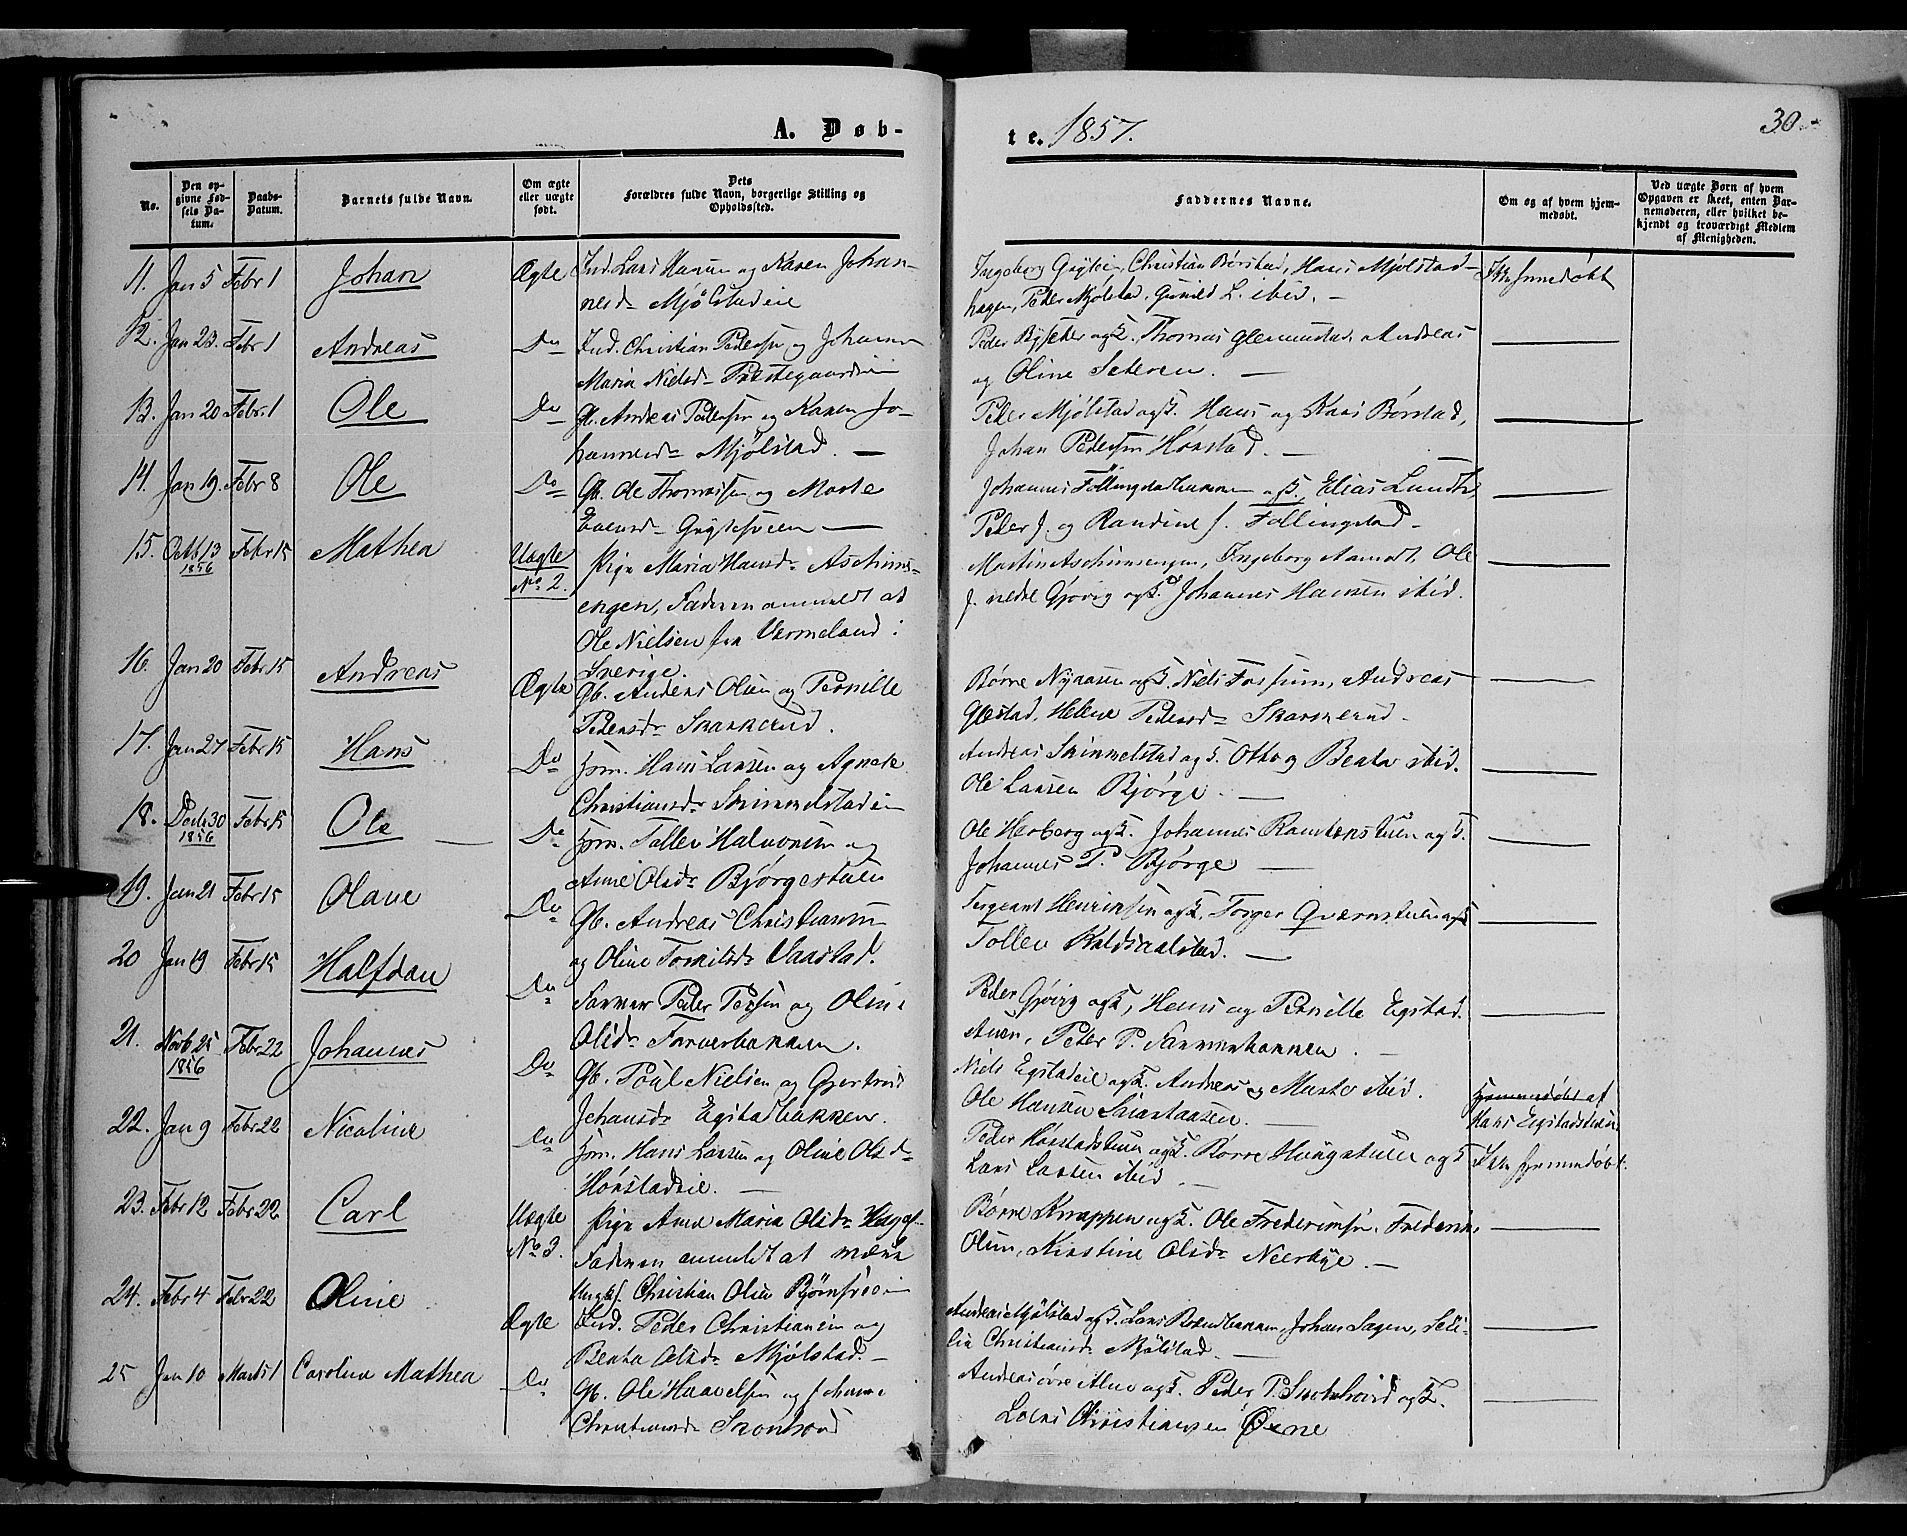 A. Døb-
te. 1857.
30
No.
Den opgivne Fødsels Datum.
Daabs-Datum.
Barnets fulde Navn.
Om ægte eller uægte født.
Dets Forældres fulde Navn, borgerlige Stilling og Opholdssted.
Faddernes Navne.
Om og af hvem hjemmedøbt.
Ved uægte Børn af hvem Opgaven er skeet, enten Barnemoderen, eller hvilket bekjendt og troværdigt Medlem af Menigheden.
11. Jan 5 Febr 1 Johan Ægte Ind. Lars Hansen og Karen Johan-
nesd. Mjølstadeie
Christian Børstad, Hans Mjølstad-
hagen, Peder Mjølstad, Gunild L. ibid. —
12. Jan 23. Febr 1 Andreas Do Ind. Christian Pedersen og Johanne
Maria Nielsd. Præstegaardseie
Peder Bysæter og K. Thomas Glemmestad, Andreas
og Oline Sæteren. —
13. Jan 20 Febr. 1 Ole Do Gb. Andreas Pedersen og Karen Jo-
hannesd. Mjølstad. —
Peder Mjølstad og K. Hans og Kari Børstad,
Johan Pedersen Hørstad. —
14. Jan 19. Febr 8 Ole Do Gb. Ole Thomassen og Marte
Evensd. —
Johannes og K. Elias Lund,
Peder J. og Randine J. Føllingstad —
15. Octb 13 1856 Febr 15 Mathea Uægte No. 2. Pige Maria Hansd. Aschims-
engen, Faderen anmeldt at
Ole Nielsen fra Vermeland i
Sverige.
Martin Aschimsengen, Ingeborg Aamodt, Ole
J. nedre Gjøvig og K. Johannes Hansen ibid.
16. Jan 20 Febr 15 Andreas Ægte Gb. Anders Olsen og Pernille
Pedersd. Skankerud.
Børre Nyaasen og K. Niels Fossum, Andreas
Glestad, Helene Pedersd. Skankerud.
17. Jan 27 Febr 15 Hans Do Hans Larsen og Agnete
Christiansd. Skimmelstadeie
Andreas Skimmelstad og K. Otto og Beate ibid.
Ole Larsen Bjørge. —
18. Decb 30 1856 Febr 15 Ole Do Tollev Halvorsen og
Anne Olsd. Bjørgestuen
Ole Herberg og K. Johannes og K.
Johannes P. Bjørge —
19. Jan 21 Febr 15 Olave Do Gb. Andreas Christiansen
og Oline
Sergeant Henriksen og K. Torger Qværnstuen og K
Tollev —
20 Jan 19 Febr 15 Halfdan Do Farver Peder Persen og Oline
Olsd. Farverbakken.
Peder Gjøvig og K, Hans og Pernille Egstad
Peder P. Farverbakken.
21. Novb 25 1856 Febr 22 Johannes Do Gb. Poul Nielsen og Gjertrud
Johansd. Egstadbakken.
Niels Egstadeie og K. Andreas og Marte ibid.
Ole Hansen —
Hjemmedøbt af
Hans Egstadstuen
22. Jan 9 Febr 22 Nicoline Do Hans Larsen og Oline Olsd.
Hørstadeie. —
Peder Hørstadstuen og K. Børre Haugstuen og K
Lars Larsen ibid. —
Ikke hjemmedøbt.
23. Febr 12 Febr 22 Carl Uægte No 3. Pige Anne Maria Olsd.
Faderen anmeldt at være
Ungk. Christian Olsen
Børre Knappen og K. Ole Frederiksen,
Olsen, Kirstine Olsd. —
24. Febr 4 Febr 22 Oline Ægte Ind. Peder Christiansen og
Beata Olsd. Mjølstad. —
Andreas Mjølstad og K. Lars Johan Sagen,
Christiansd. Mjølstad. —
25 Jan 10 Marts 1 Caroline Mathea Do Gb. Ole Haavelsen og Johanne
Christiansd.
Andreas og K. Peder P. og K.
Lars Christiansen